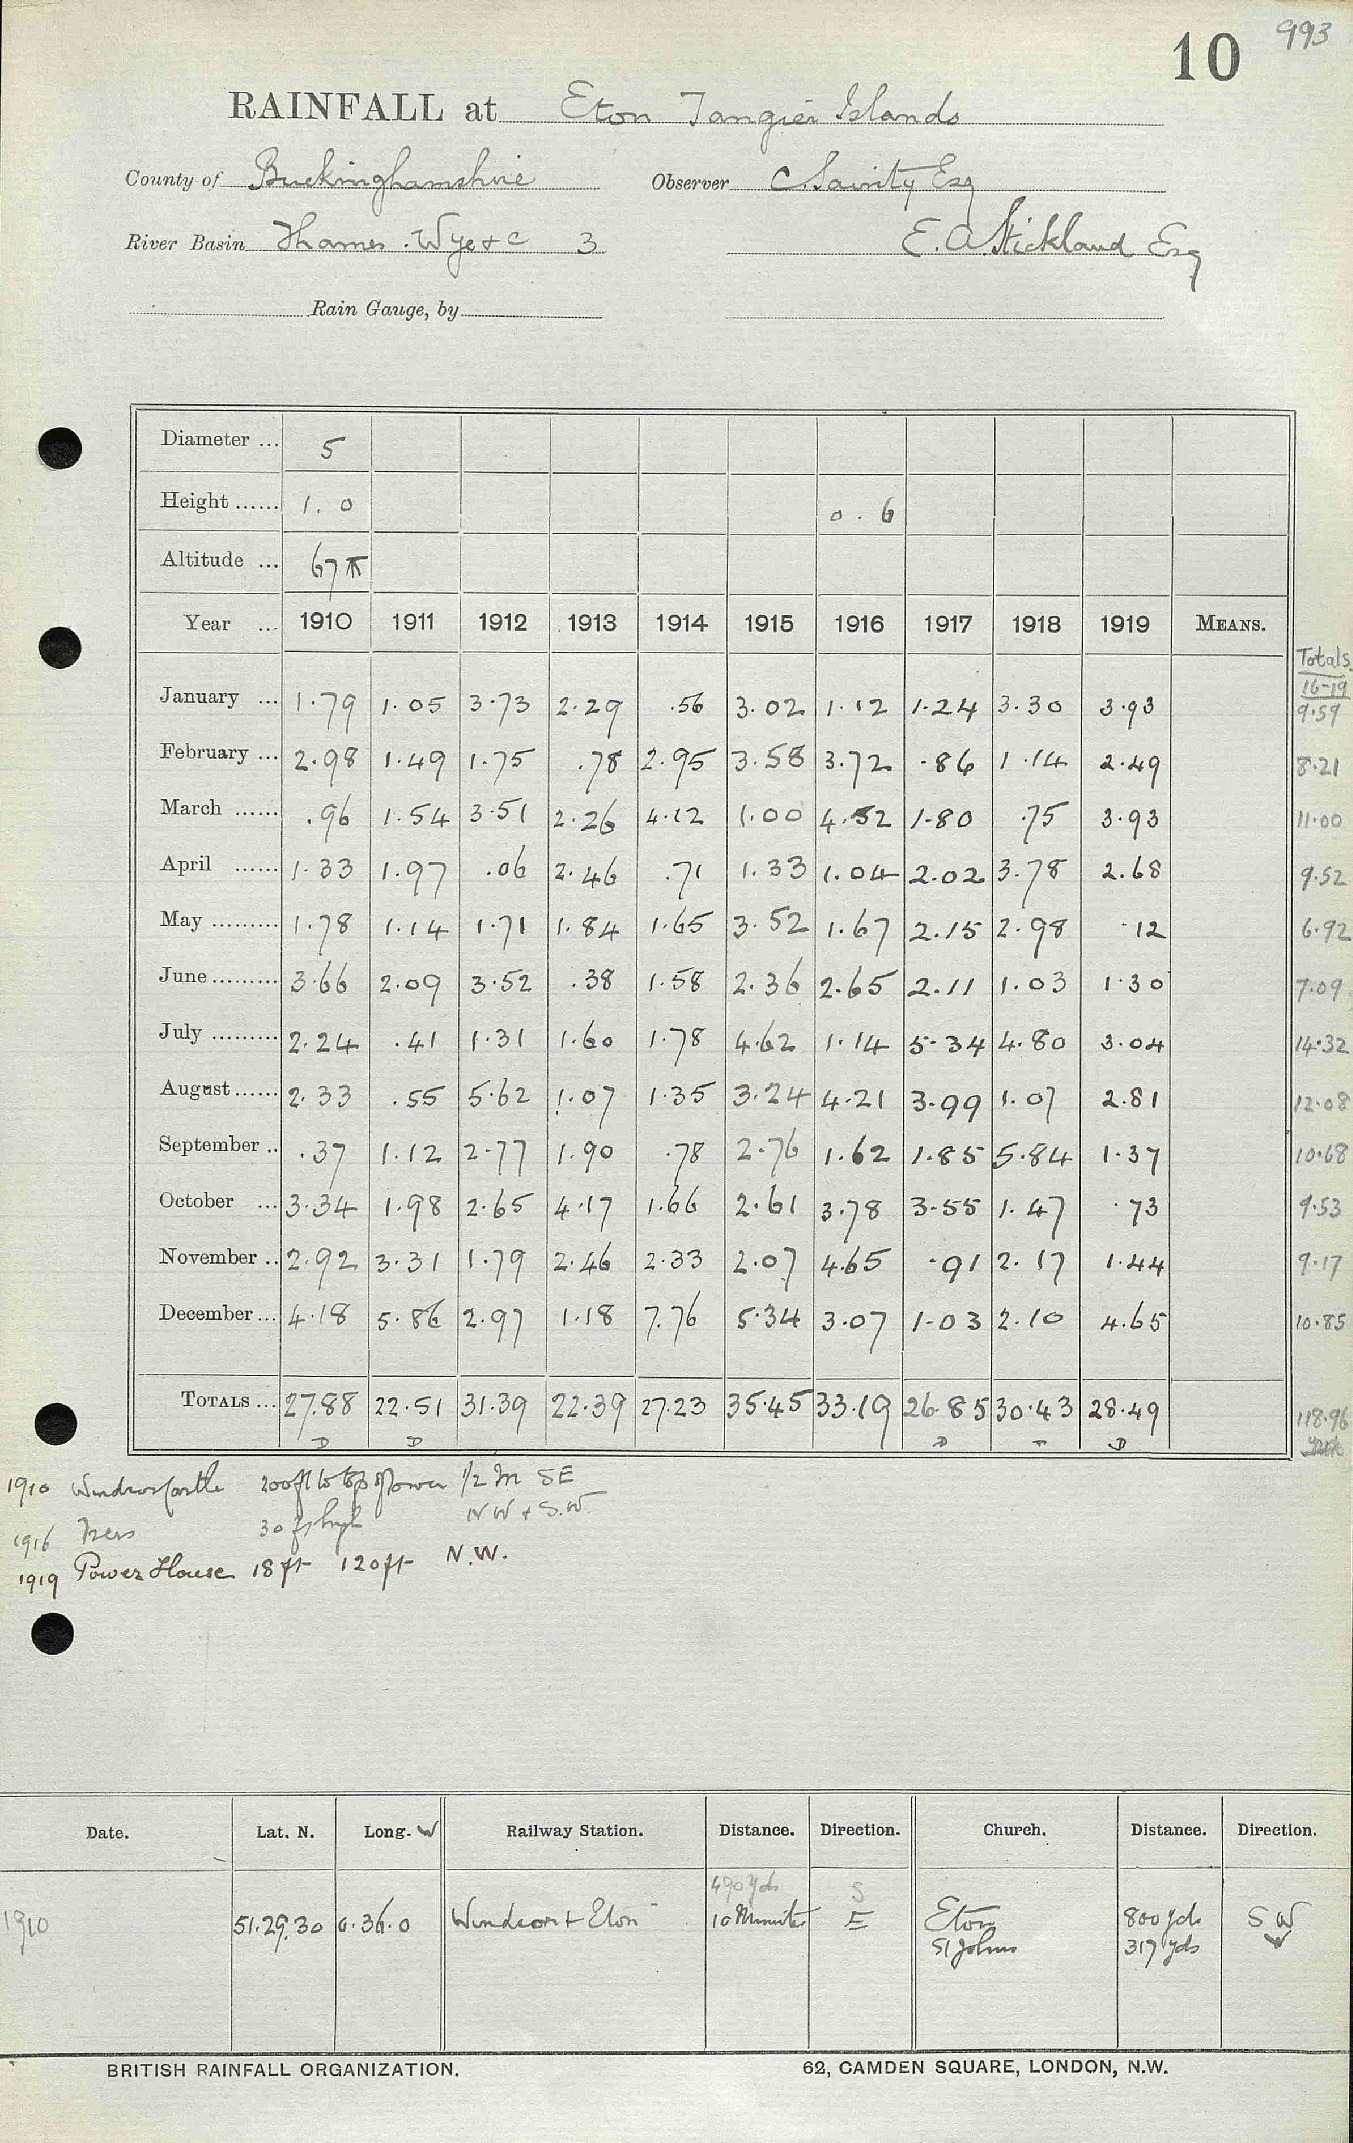 10 993
RAINFALL at Eton Tangier Islands
County of Buckinghamshire Observer C. Sainty Esq
River Basin Thames . Wye & c 3 E. A Stickland Esq
Rain Gauge, by
Diameter ... 5
Height ...... 1. 0 0 . 6
Altitude ... 67
Year ... 1910 1911 1912 1913 1914 1915 1916 1917 1918 1919 MEANS.
Totals
16-19
January ... 1.79 1.05 3.73 2.29 .56 3.02 1.12 1.24 3.30 3.93 9.59
February ... 2.98 1.49 1.75 .78 2.95 3.58 3.72 .86 1.14 2.49 8.21
March ...... .96 1.54 3.51 2.26 4.12 1.00 4.52 1.80 .75 3.93 11.00
April ...... 1.33 1.97 .06 2.46 .71 1.33 1.04 2.02 3.78 2.68 9.52
May ......... 1.78 1.14 1.71 1.84 1.65 3.52 1.67 2.15 2.98 .12 6.92
June ......... 3.66 2.09 3.52 .38 1.58 2.36 2.65 2.11 1.03 1.30 7.09
July ......... 2.24 .41 1.31 1.60 1.78 4.62 1.14 5.34 4.80 3.04 14.32
August ...... 2.33 .55 5.62 1.07 1.35 3.24 4.21 3.99 1.07 2.81 12.08
September .. .37 1.12 2.77 1.90 .78 2.76 1.62 1.85 5.84 1.37 10.68
October ... 3.34 1.98 2.65 4.17 1.66 2.61 3.78 3.55 1.47 .73 9.53
November .. 2.92 3.31 1.79 2.46 2.33 2.07 4.65 .91 2.17 1.44 9.17
December ... 4.18 5.86 2.97 1.18 7.76 5.34 3.07 1.03 2.10 4.65 10.85
TOTALS ... 27.88 22.51 31.39 22.39 27.23 35.45 33.19 26.85 30.43 28.49 118.96
D D D D
1910 Windsor Castle 200ft to top of tower 1/2 m SE
1916 Trees 30 ft high NW + S.W
1919 Power House 18 ft 120 ft N.W.
Date. Lat. N. Long. W Railway Station. Distance. Direction. Church. Distance. Direction.
490 yds S
1910 51.29.30 0.36.0 Windsor & Eton 10 Minutes E Eton 800 yds S W
St Johns 317 yds W
BRITISH RAINFALL ORGANIZATION. 62, CAMDEN SQUARE, LONDON, N.W.